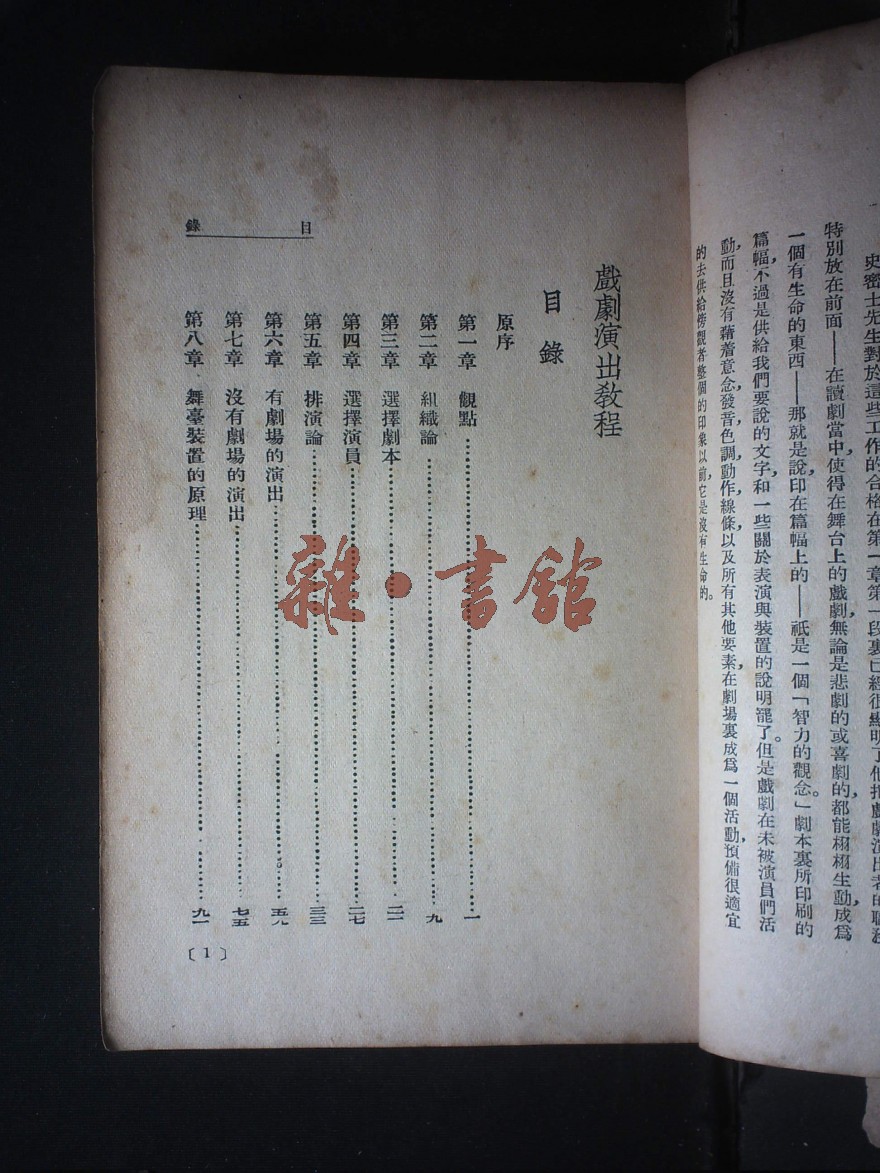 史密士先生對於這些工作的合格在第一章第一段裏已經很顯明了他把戲劇演出者的職務
特別放在前面——在讀劇當中使得在舞台上的戲劇,無論是悲劇的或喜劇的,都能栩栩生動,成爲
一個有生命的東西——那就是說,印在篇幅上的——祇是一個「智力的觀念」。劇本裏所印刷的
篇幅,不過是供給我們要說的文字,和一些關於表演與裝置的說明罷了。但是戲劇在未被演員們活
動,而且沒有藉着意念,發音,色調,動作,線條,以及所有其他要素,在劇場裏成爲一個活動,預備很適宜
的去供給傍觀者整個的印象以前,它是沒有生命的。
戲劇演出教程
目錄
原序
第一章 觀點……一
第二章 組織論……九
第三章 選擇劇本……二一
第四章 選擇演員……二七
第五章 排演論……三三
第六章 有劇場的演出……五九
第七章 沒有劇場的演出……七五
第八章 舞臺裝置的原理……九一
目錄
〔1〕
雜·書館